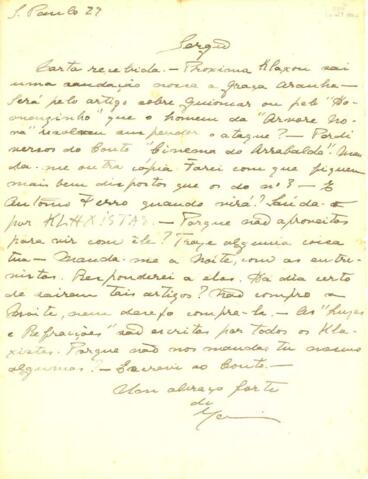 S. Paulo 27
Sergio
Carta recebida. — Proxima Klaxon sai
uma saudação nossa a Graça Aranha —
Será pelo artigo sobre Guiomar ou pelo "Do-
menguinho" que o homem da "Arvore No-
va" resolveu suspender o ataque? — Perdi
versos do Couto "Cinema do Arrabalde". Man-
da-me outra cópia. Farei com que fiquem
mais bem dispostos que os do nº 3 — E
Antonio Ferro quando virá? Saúda-o
por KLAXISTAS. — Porque não aproveitas
para vir com êle? Traze alguma coisa
tua — Manda-me a Noite, com as entre-
vistas. Responderei a elas. Ha dia certo
de sairem tais artigos? Não compro a
Noite, nem desejo compra-la. — As "Luzes
e Refracções" são escritas por todos os Kla-
xistas. Porque não nos mandas tu mesmo
algumas? — Escrevi ao Couto. —
Um abraço forte
do